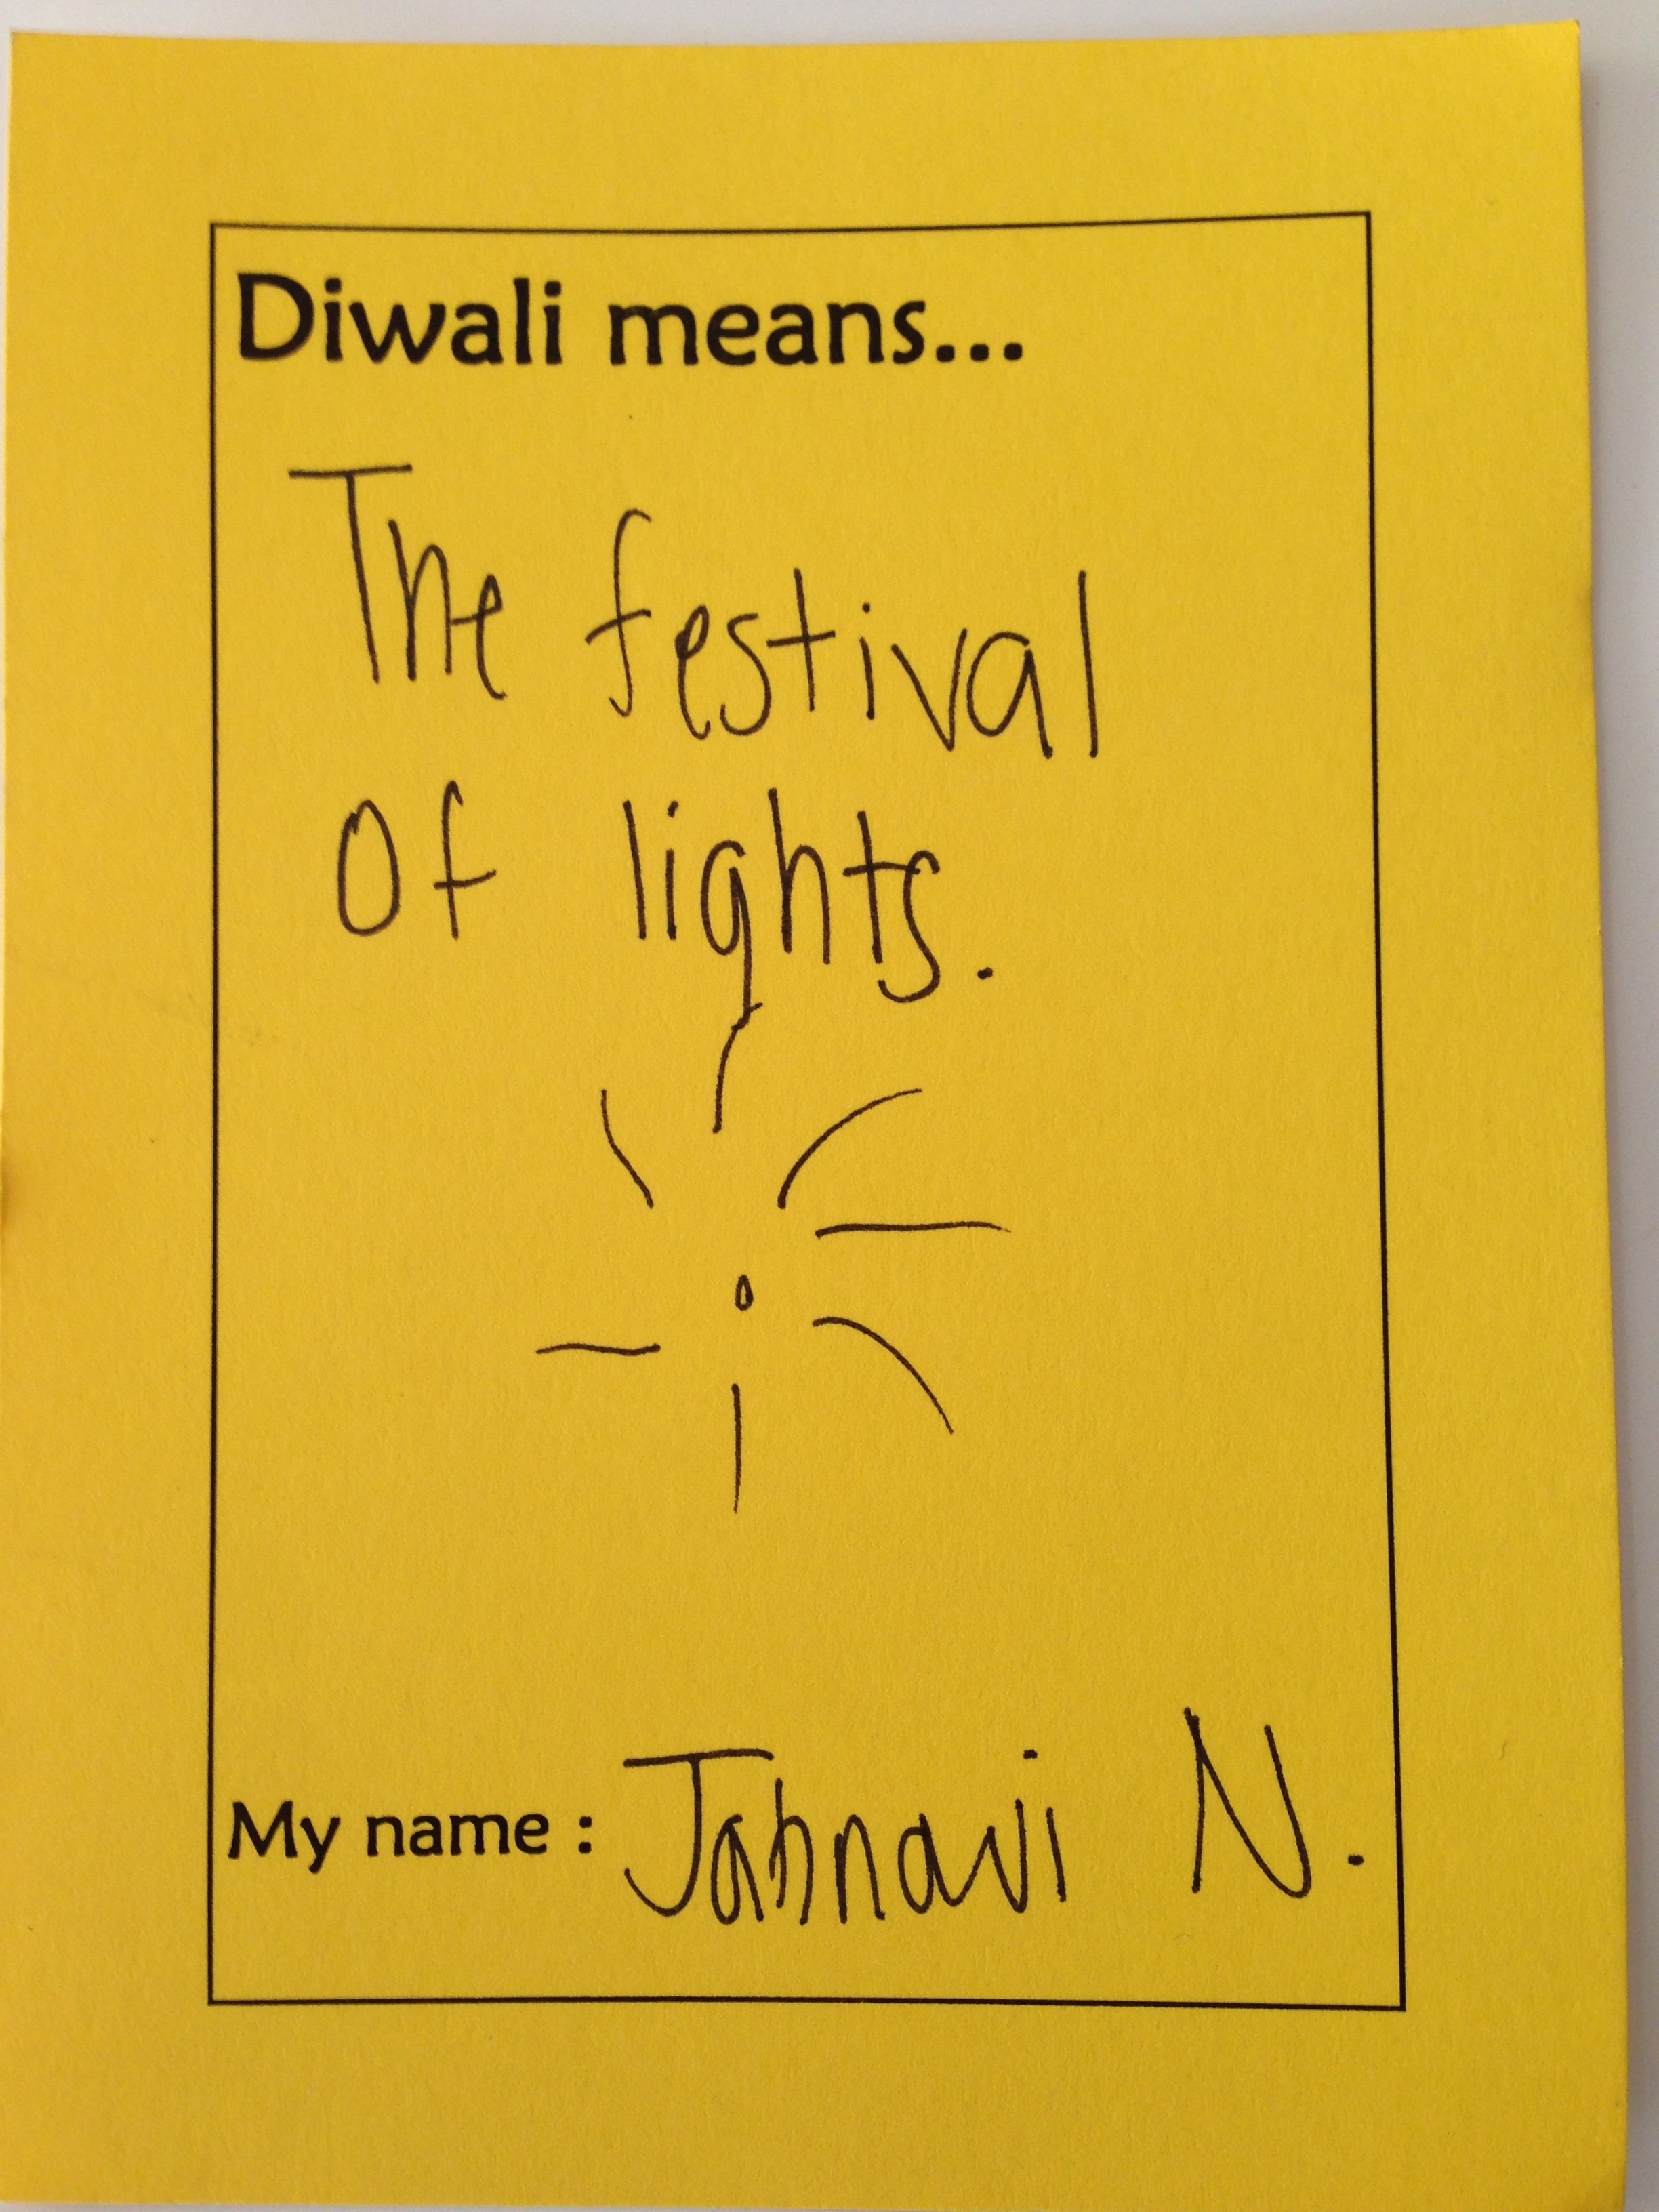 Diwali means...
The festival
Of lights.
My name : Jahnavi N.